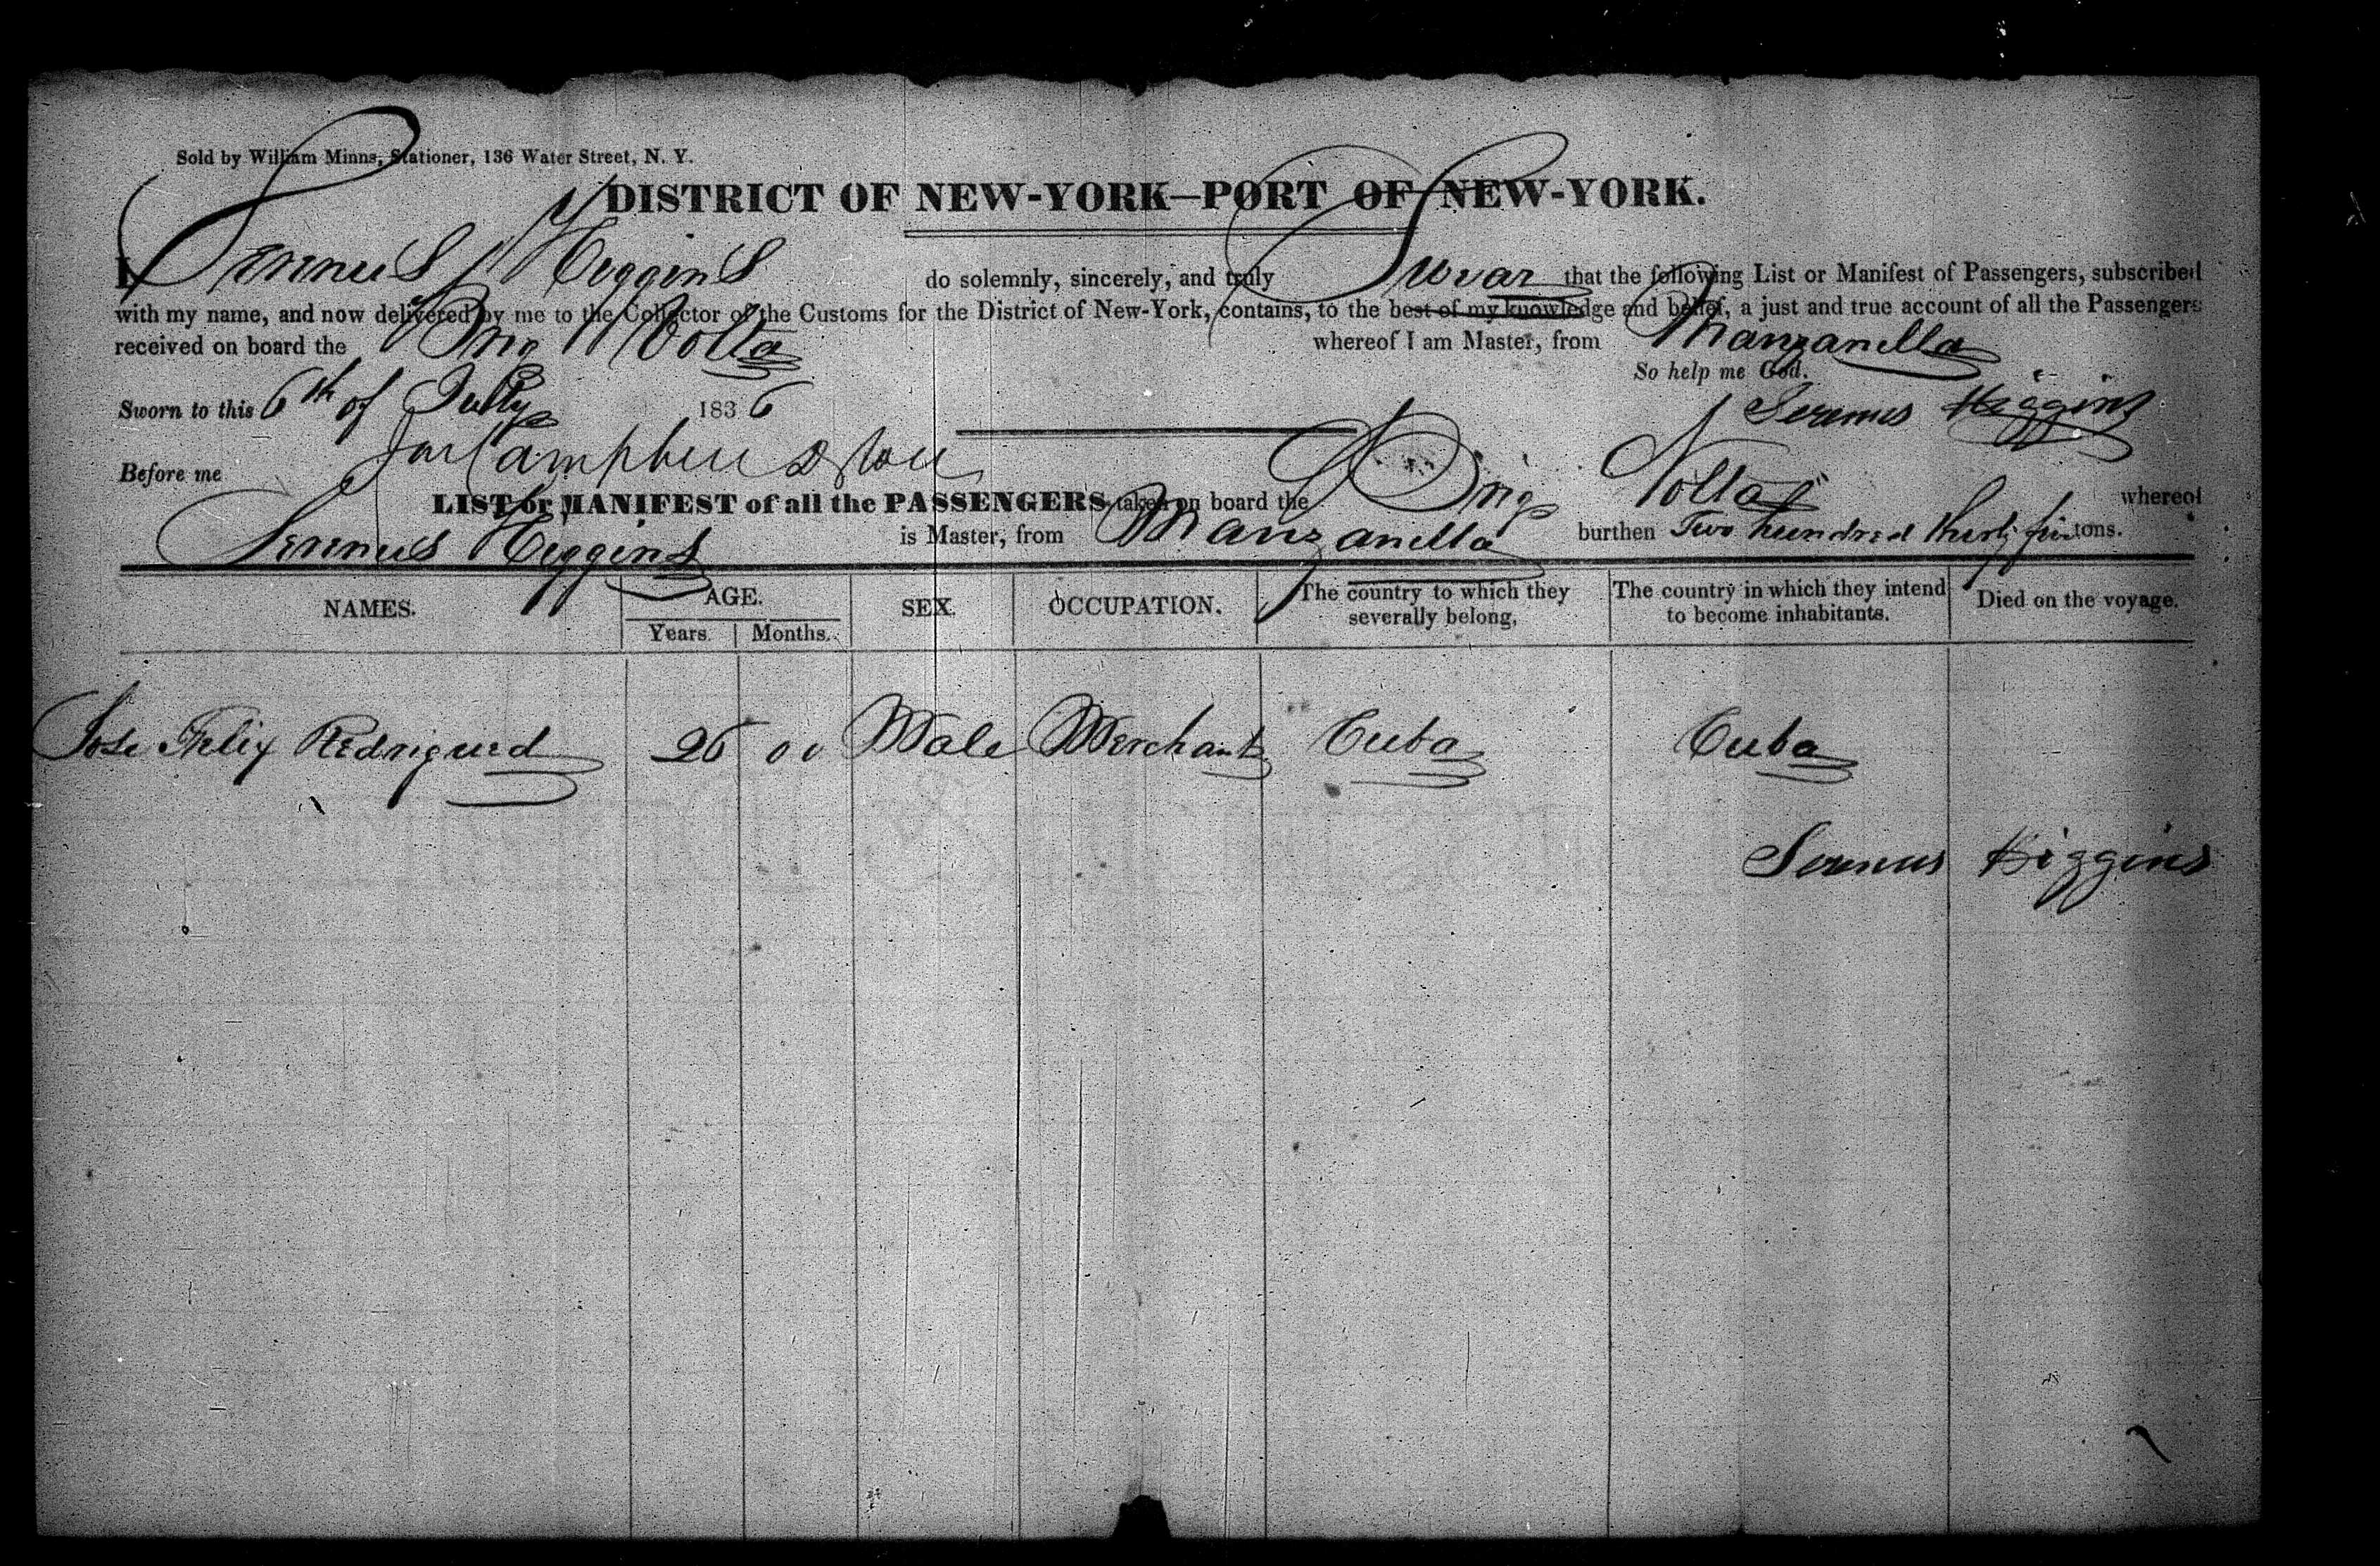 Sold by William Minns, Stationer, 136 Water Street, N. Y.
DISTRICT OF NEW-YORK—PORT OF NEW-YORK.
I, Serenus Higgins do solemnly, sincerely, and truly Swear that the following List or Manifest of Passengers, subscribed
with my name, and now delivered by me to the Collector of the Customs for the District of New-York, contains, to the best of my knowledge and belief, a just and true account of all the Passengers
received on board the Brig Volta whereof I am Master, from Manzanilla
So help me God.
Sworn to this 6th of July 1836 Serenus Higgins
Before me
LIST or MANIFEST of all the PASSENGERS taken on board the Brig Volta whereof
Serenus Higgins is Master, from Manzanilla burthen Two hundred thirty tons.
NAMES. AGE. SEX. OCCUPATION. The country to which they severally belong, The country in which they intend to become inhabitants. Died on the voyage.
Years. Months.
Jose Felix 26 00 Male Merchant Cuba Cuba
Serenus Higgins